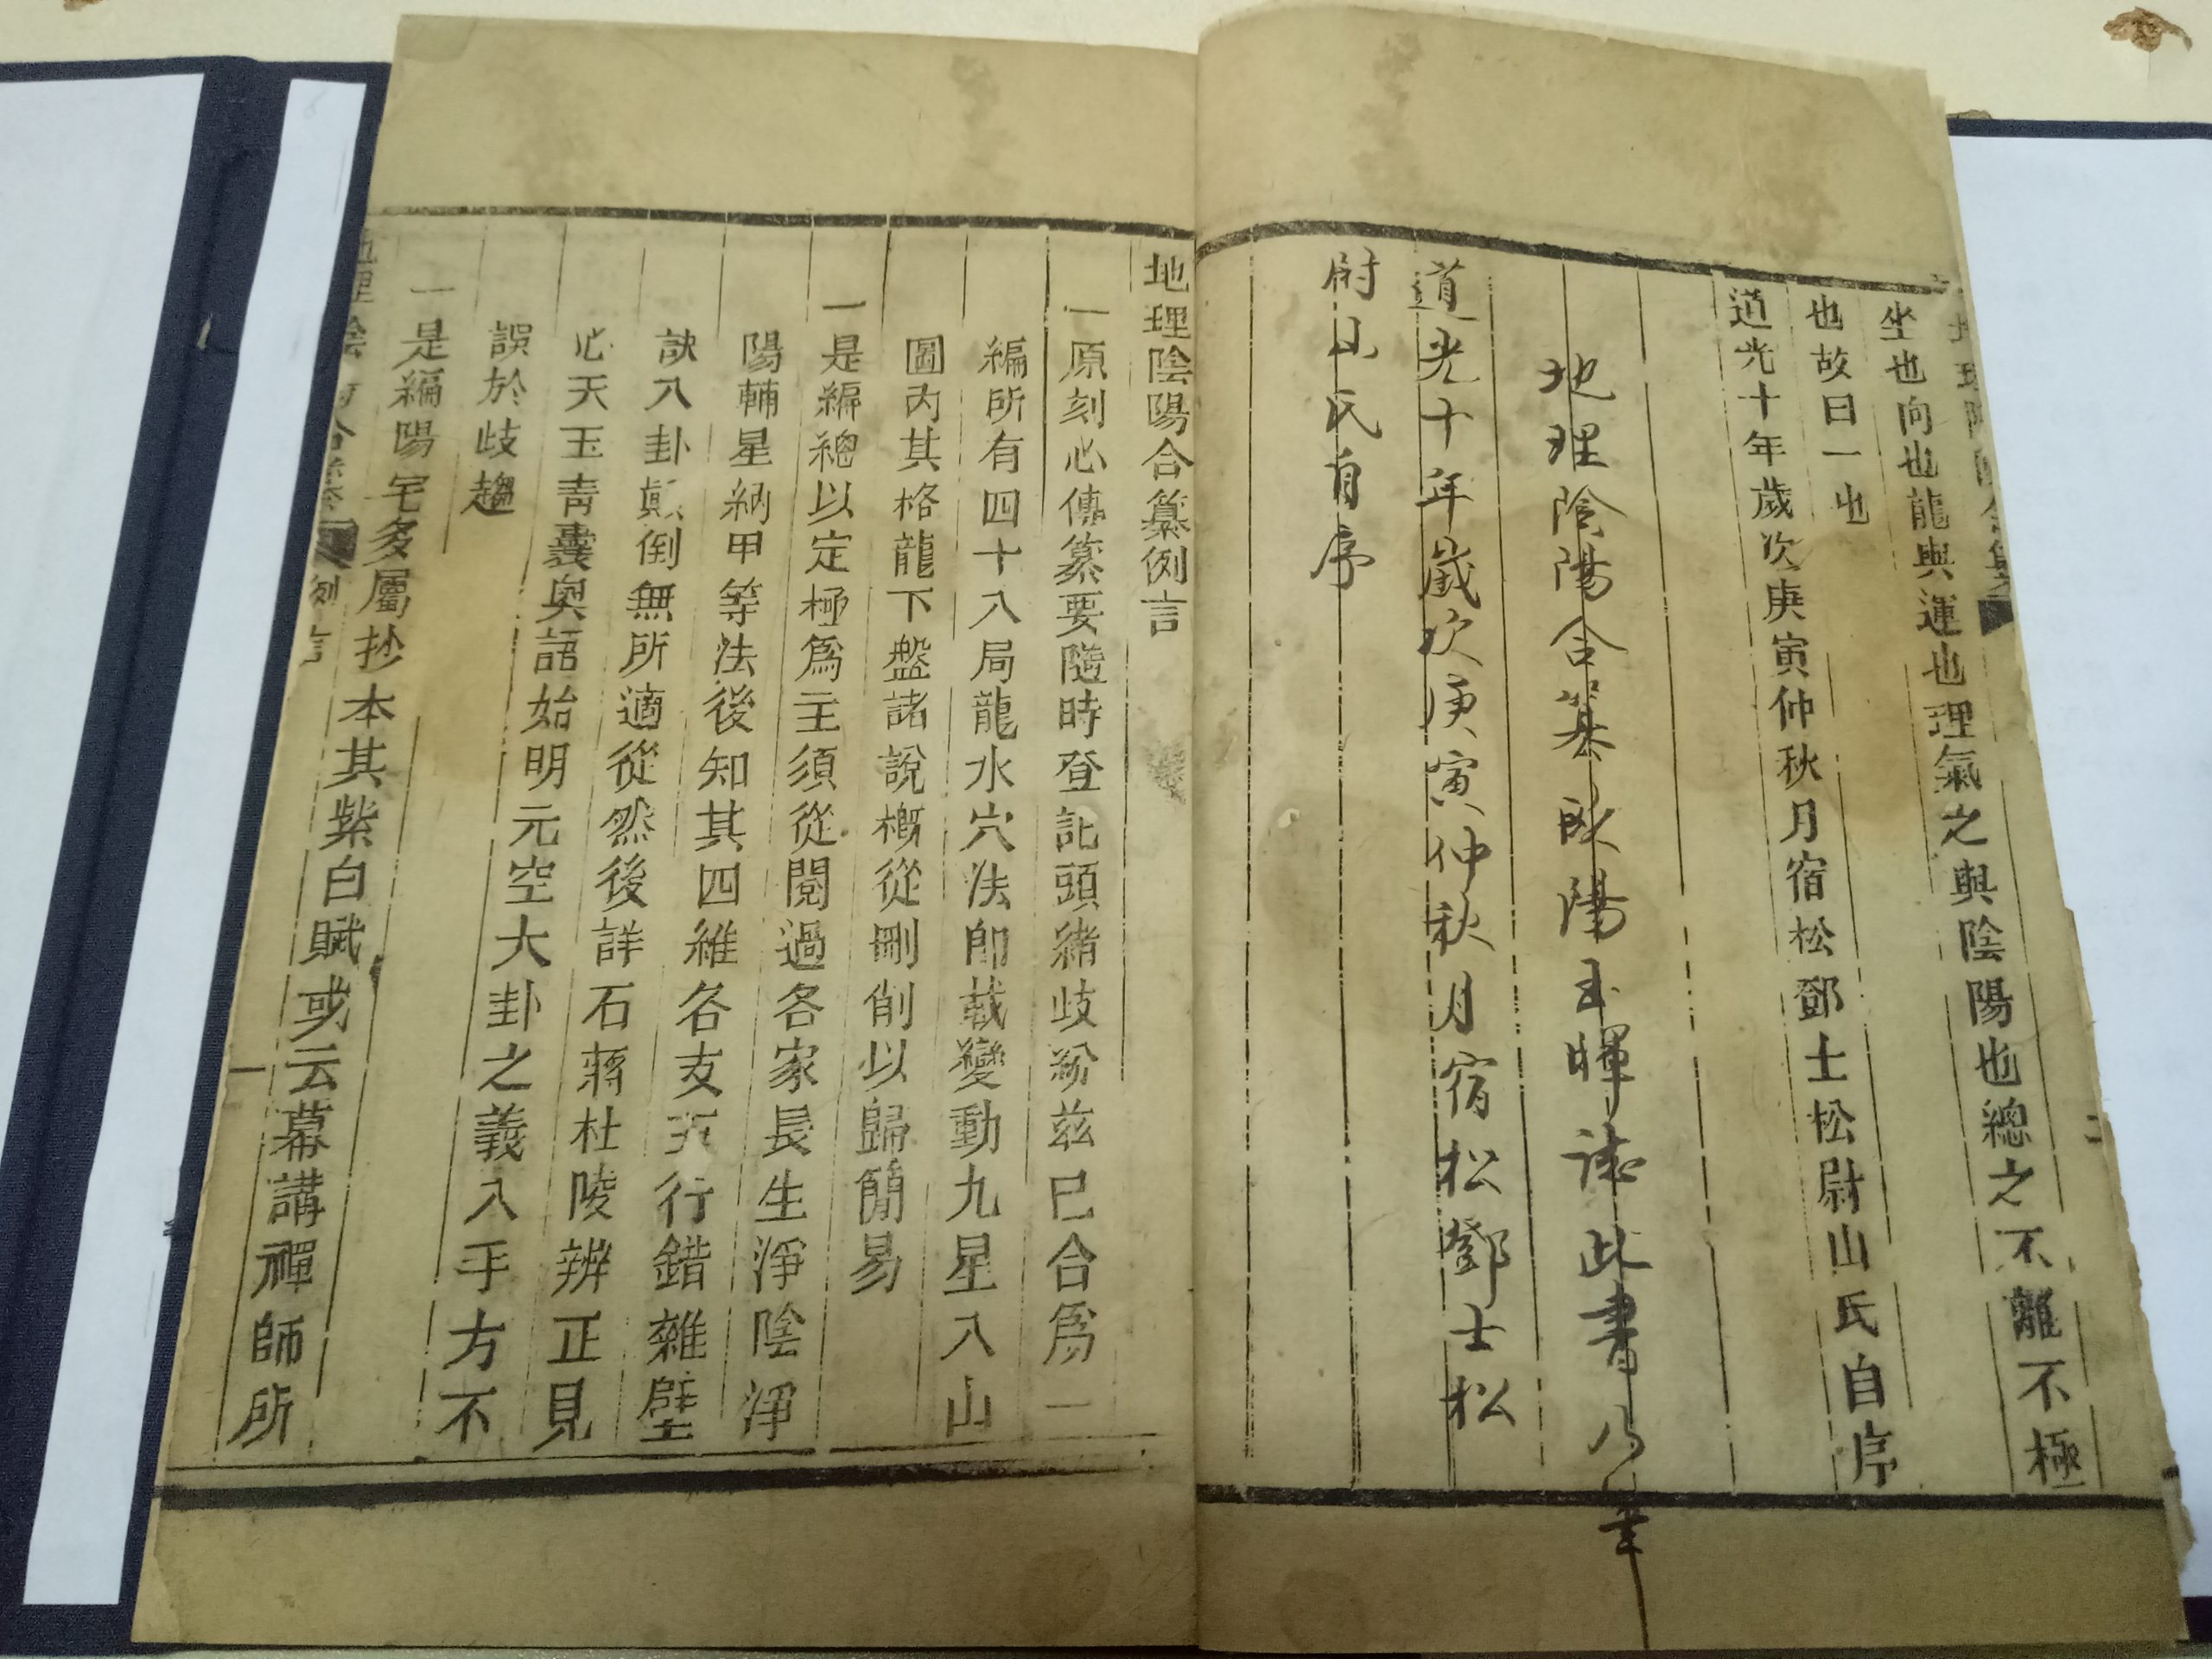 坐也向也龍與運也理氣之與陰陽也總之不離不極
也故曰一也
道光十年歲次庚寅仲秋月宿松鄧士松尉山氏自序
地理陰陽合纂歐陽玉暉誌此書乃筆
道光十年歲次庚寅仲秋月宿松鄧士松
尉山氏自序
地理陰陽合纂例言
一原刻心傳纂要隨時登記頭緒歧紛茲已合爲一
編所有四十八局龍水穴法卽載變動九星入山
圖內其格龍下盤諸說槪從刪削以歸簡易
一是編總以定極爲主須從閱過各家長生淨陰淨
陽輔星納甲等法後知其四維各支五行錯雜壁
訣八卦顚倒無所適從然後詳石蔣杜陵辨正見
心天玉青囊奥語始明元空大卦之義入手方不
誤於歧趨
一是編陽宅多屬抄本其紫白賦或云幕講禪師所
例言
一